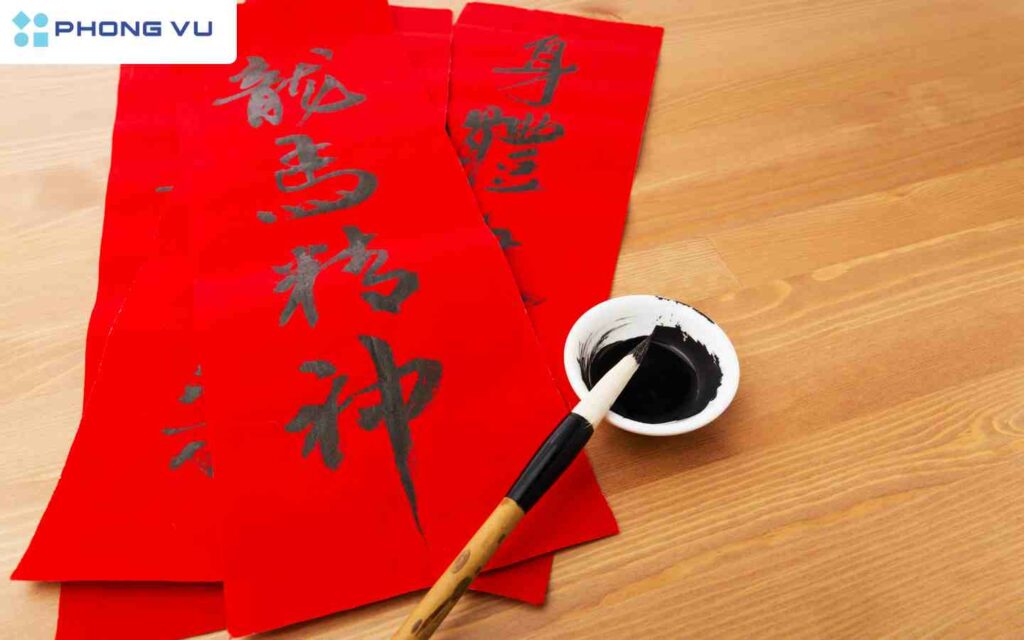 PHONG VU
龍馬精神
身體